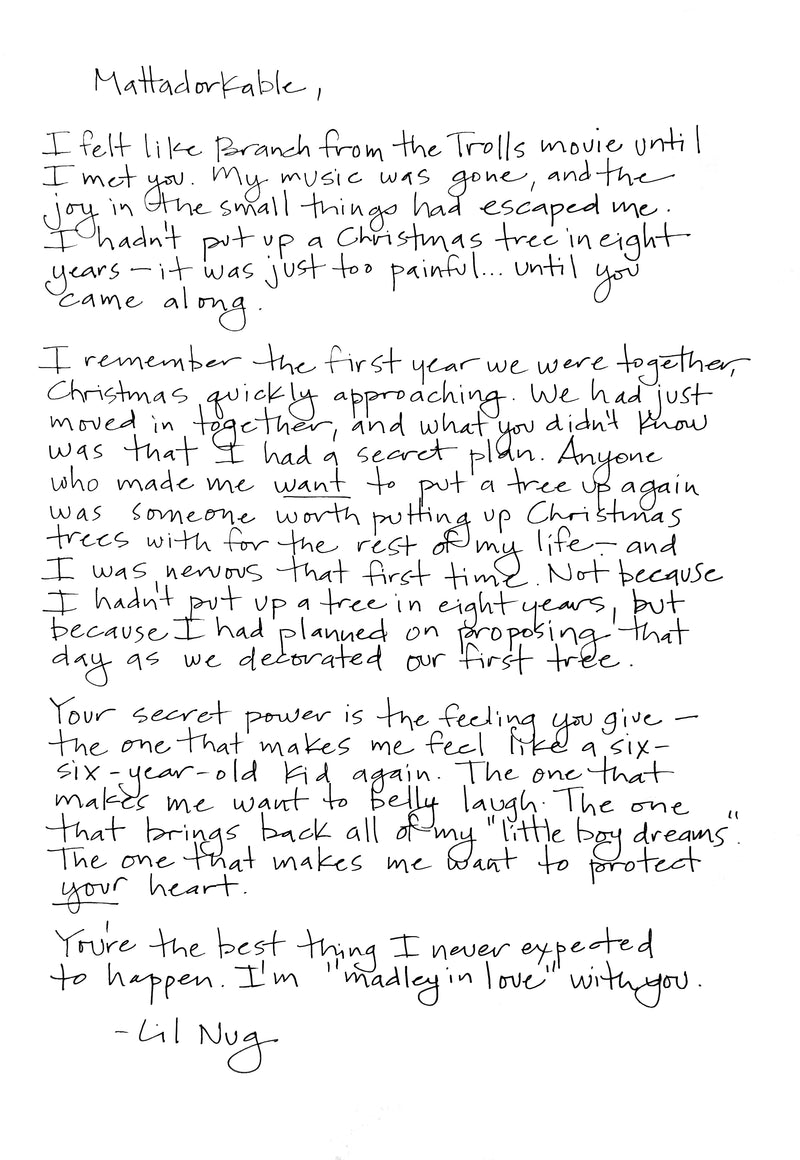 Mattadorkable,
I felt like Branch from the Trolls movie until
I met you. My music was gone, and the
joy in the small things had escaped me.
I hadn't put up a Christmas tree in eight
years – it was just too painful... until you
came along.
I remember the first year we were together,
Christmas quickly approaching. We had just
moved in together, and what you didn't know
was that I had a secret plan. Anyone
who made me want to put a tree up again
was someone worth putting up Christmas
trees with for the rest of my life – and
I was nervous that first time. Not because
I hadn't put up a tree in eight years, but
because I had planned on proposing that
day as we decorated our first tree.
Your secret power is the feeling you give –
the one that makes me feel like a six-
six-year-old kid again. The one that
makes me want to belly laugh. The one
that brings back all of my "little boy dreams".
The one that makes me want to protect
your heart.
You're the best thing I never expected
to happen. I'm "madley in love" with you.
-Lil Nug